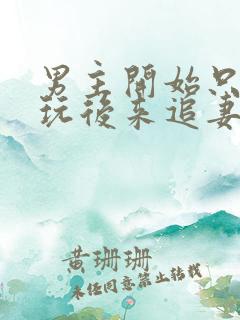 男主開始只
玩後來追妻
黃珊珊
未经同意禁止转载